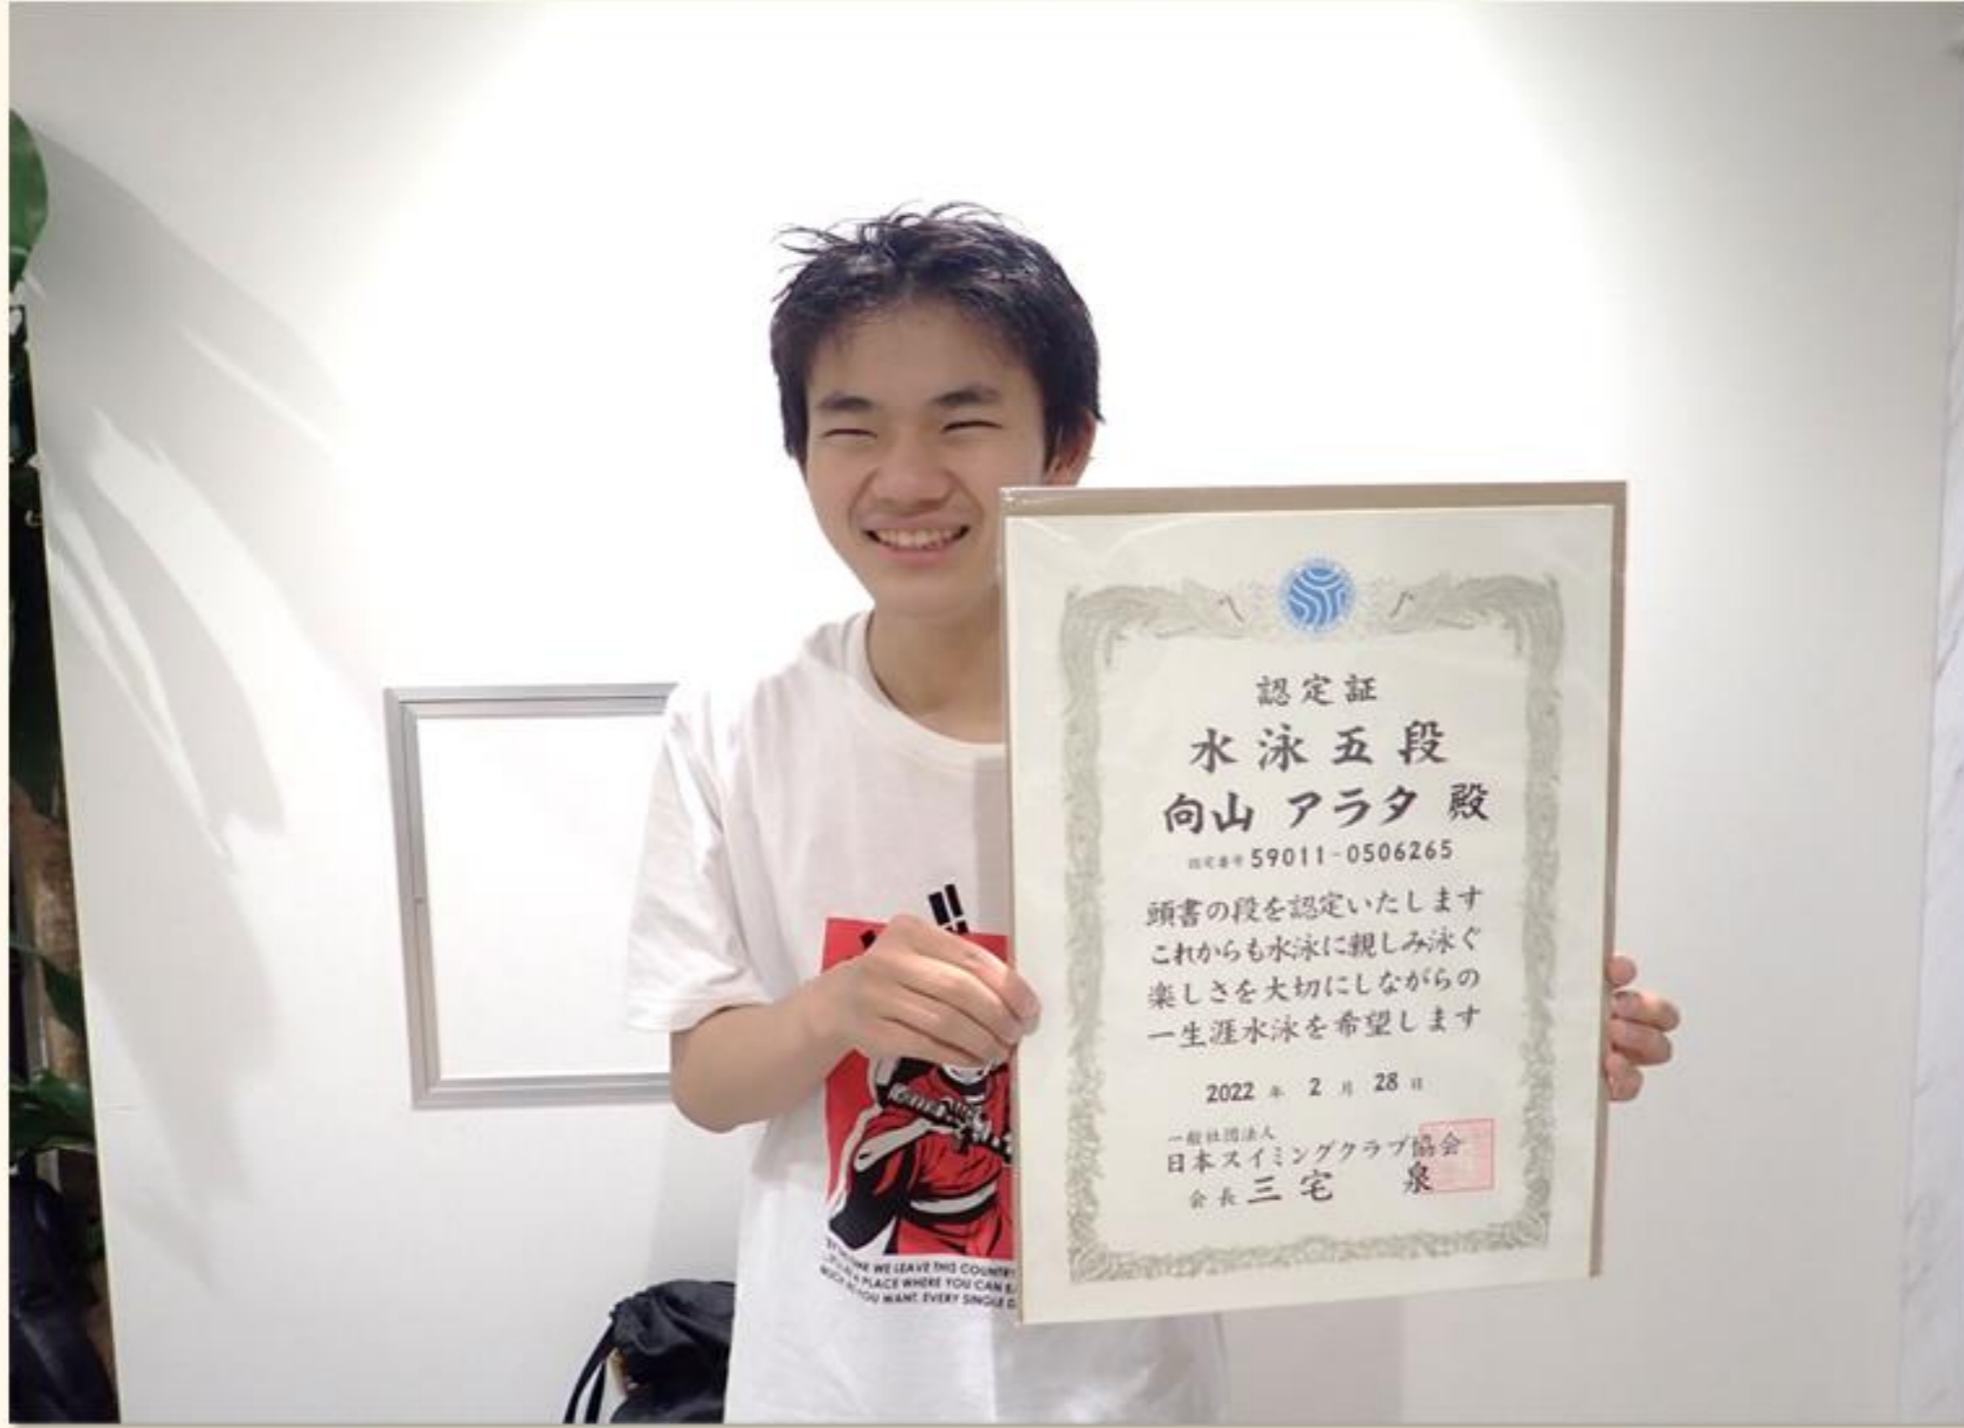 認定証
水泳五段
向山 アラタ 殿
認定番号 59011-0506265
頭書の段を認定いたします
これからも水泳に親しみ泳ぐ
楽しさを大切にしながらの
一生涯水泳を希望します
2022 年 2 月 28 日
一般社団法人
日本スイミングクラブ協会
会長 三宅 泉
WE LEAVE THIS COUNTRY
PLACE WHERE YOU CAN
YOU WANT EVERY SINGLE